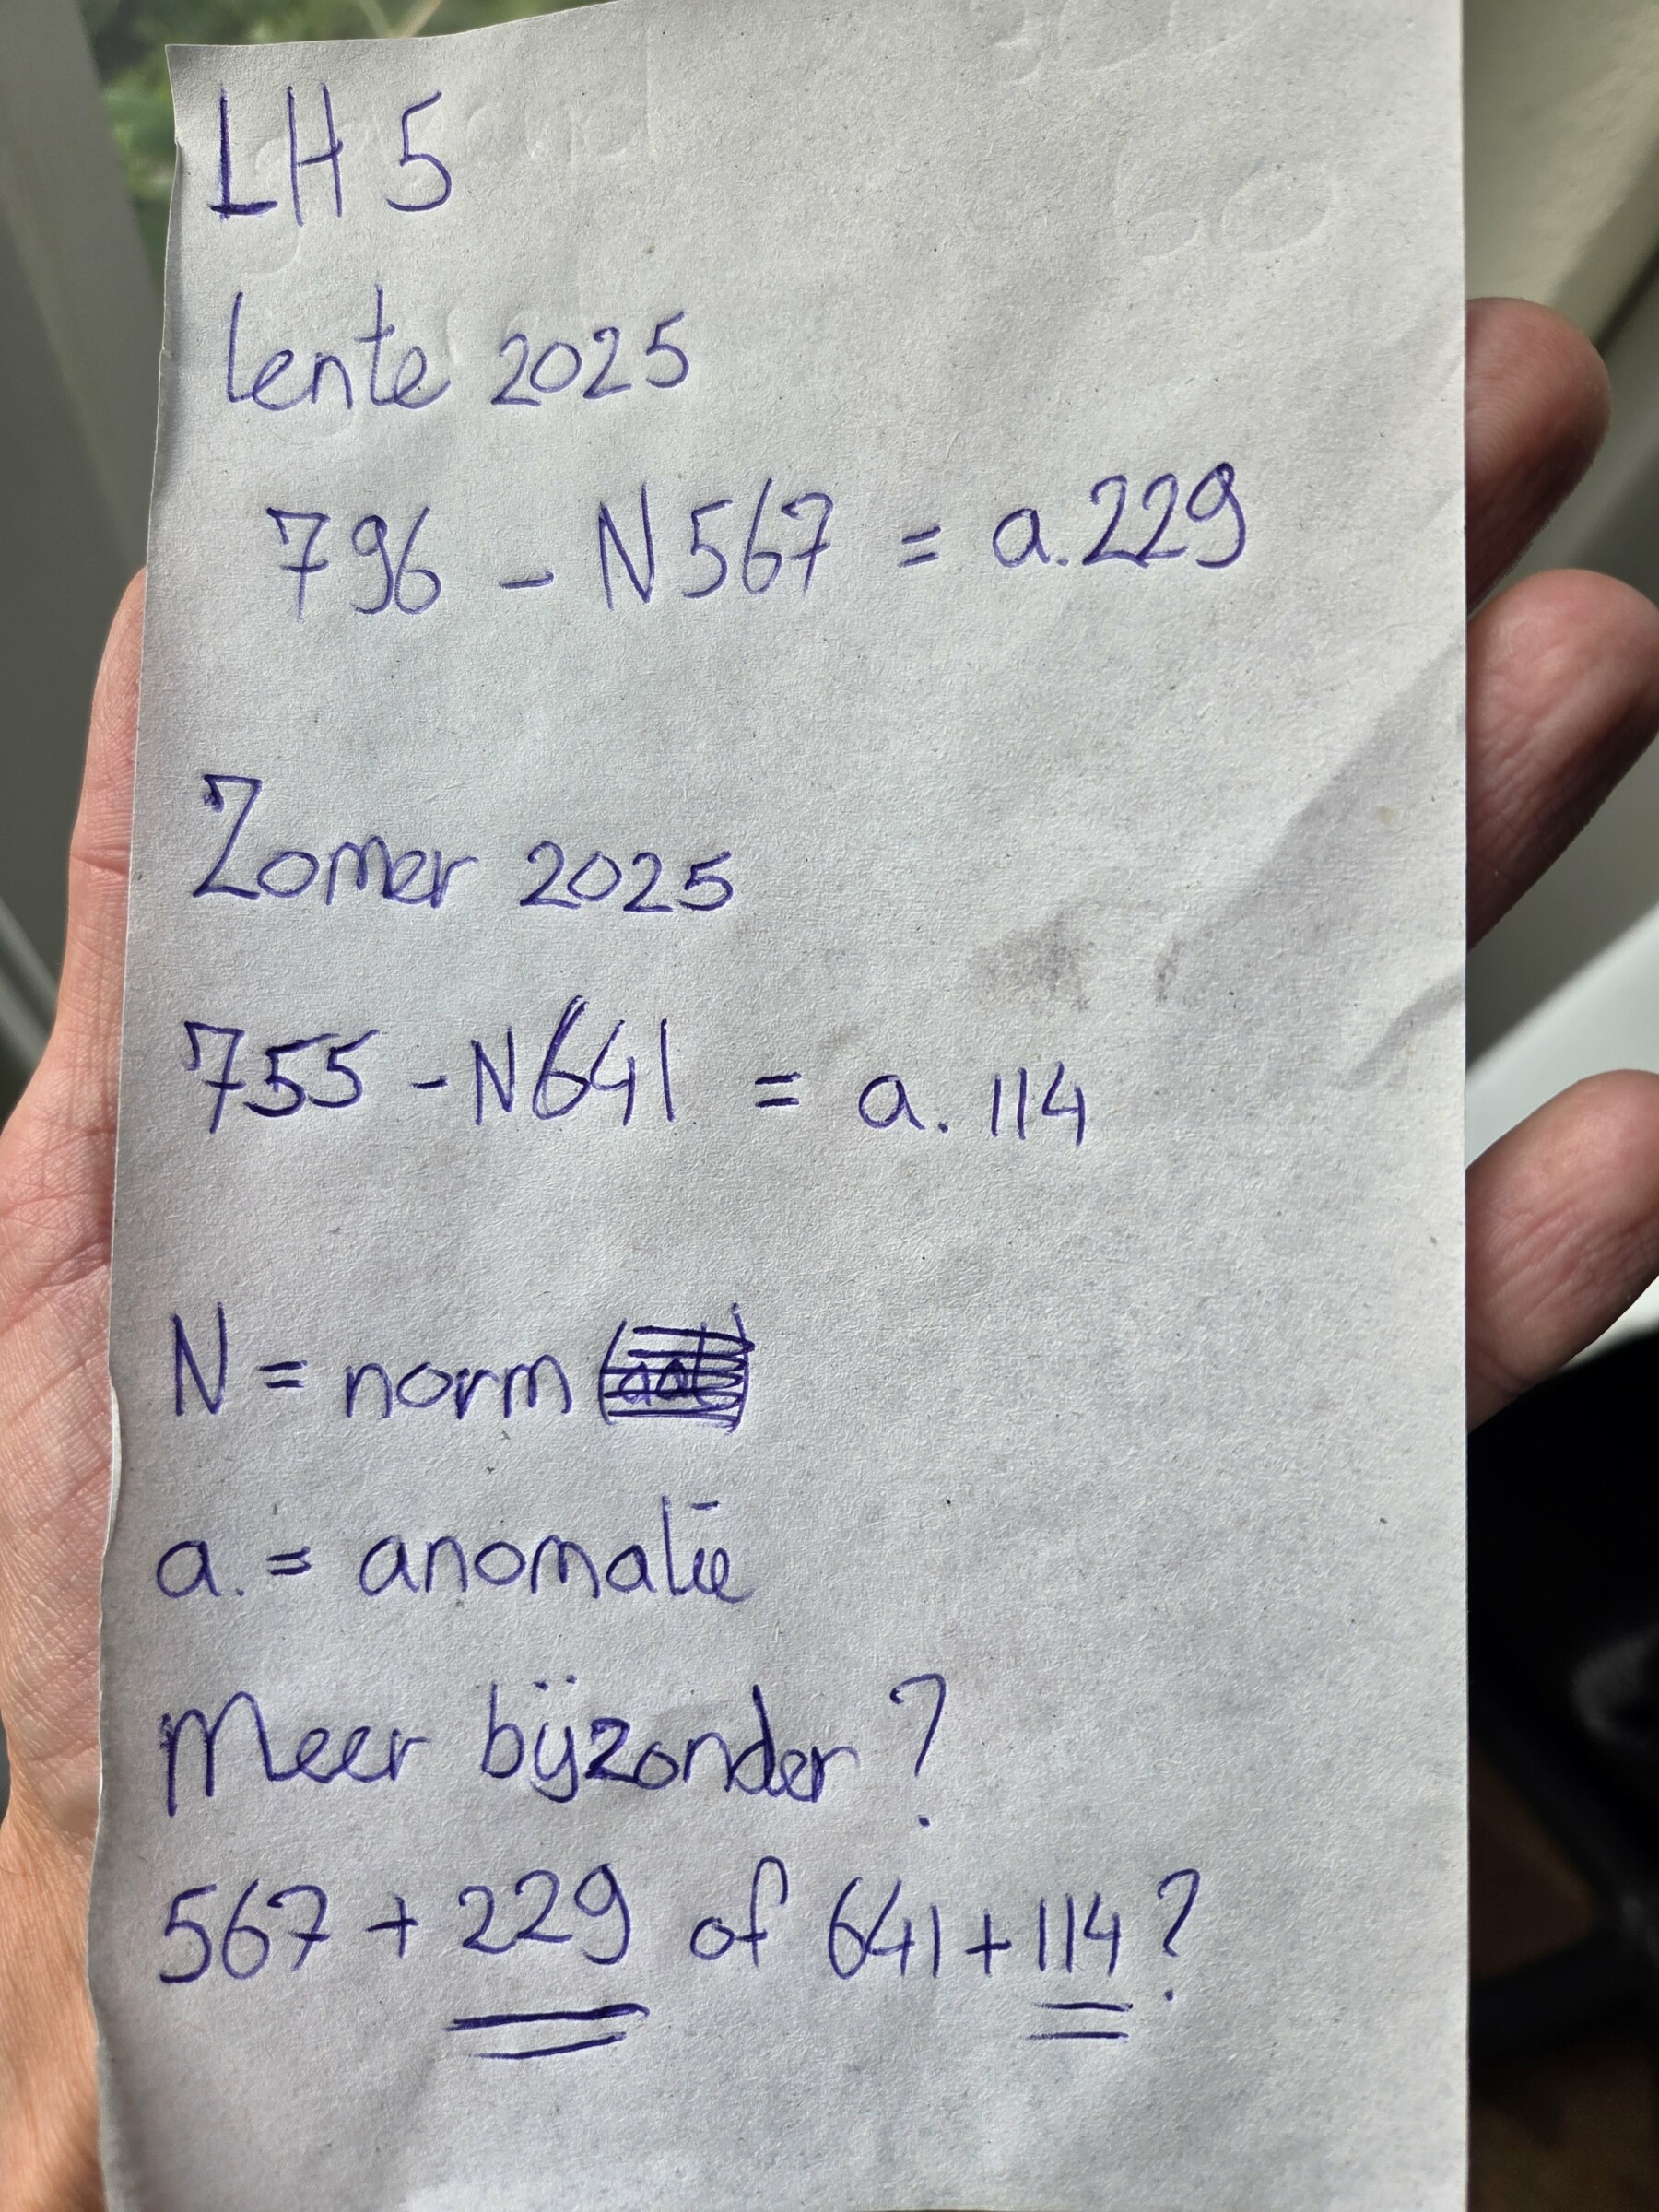 LH 5
lente 2025
796 - N 567 = a. 229
Zomer 2025
755 - N 641 = a. 114
N = norm
a. = anomalie
Meer bijzonder?
567 + 229 of 641 + 114?